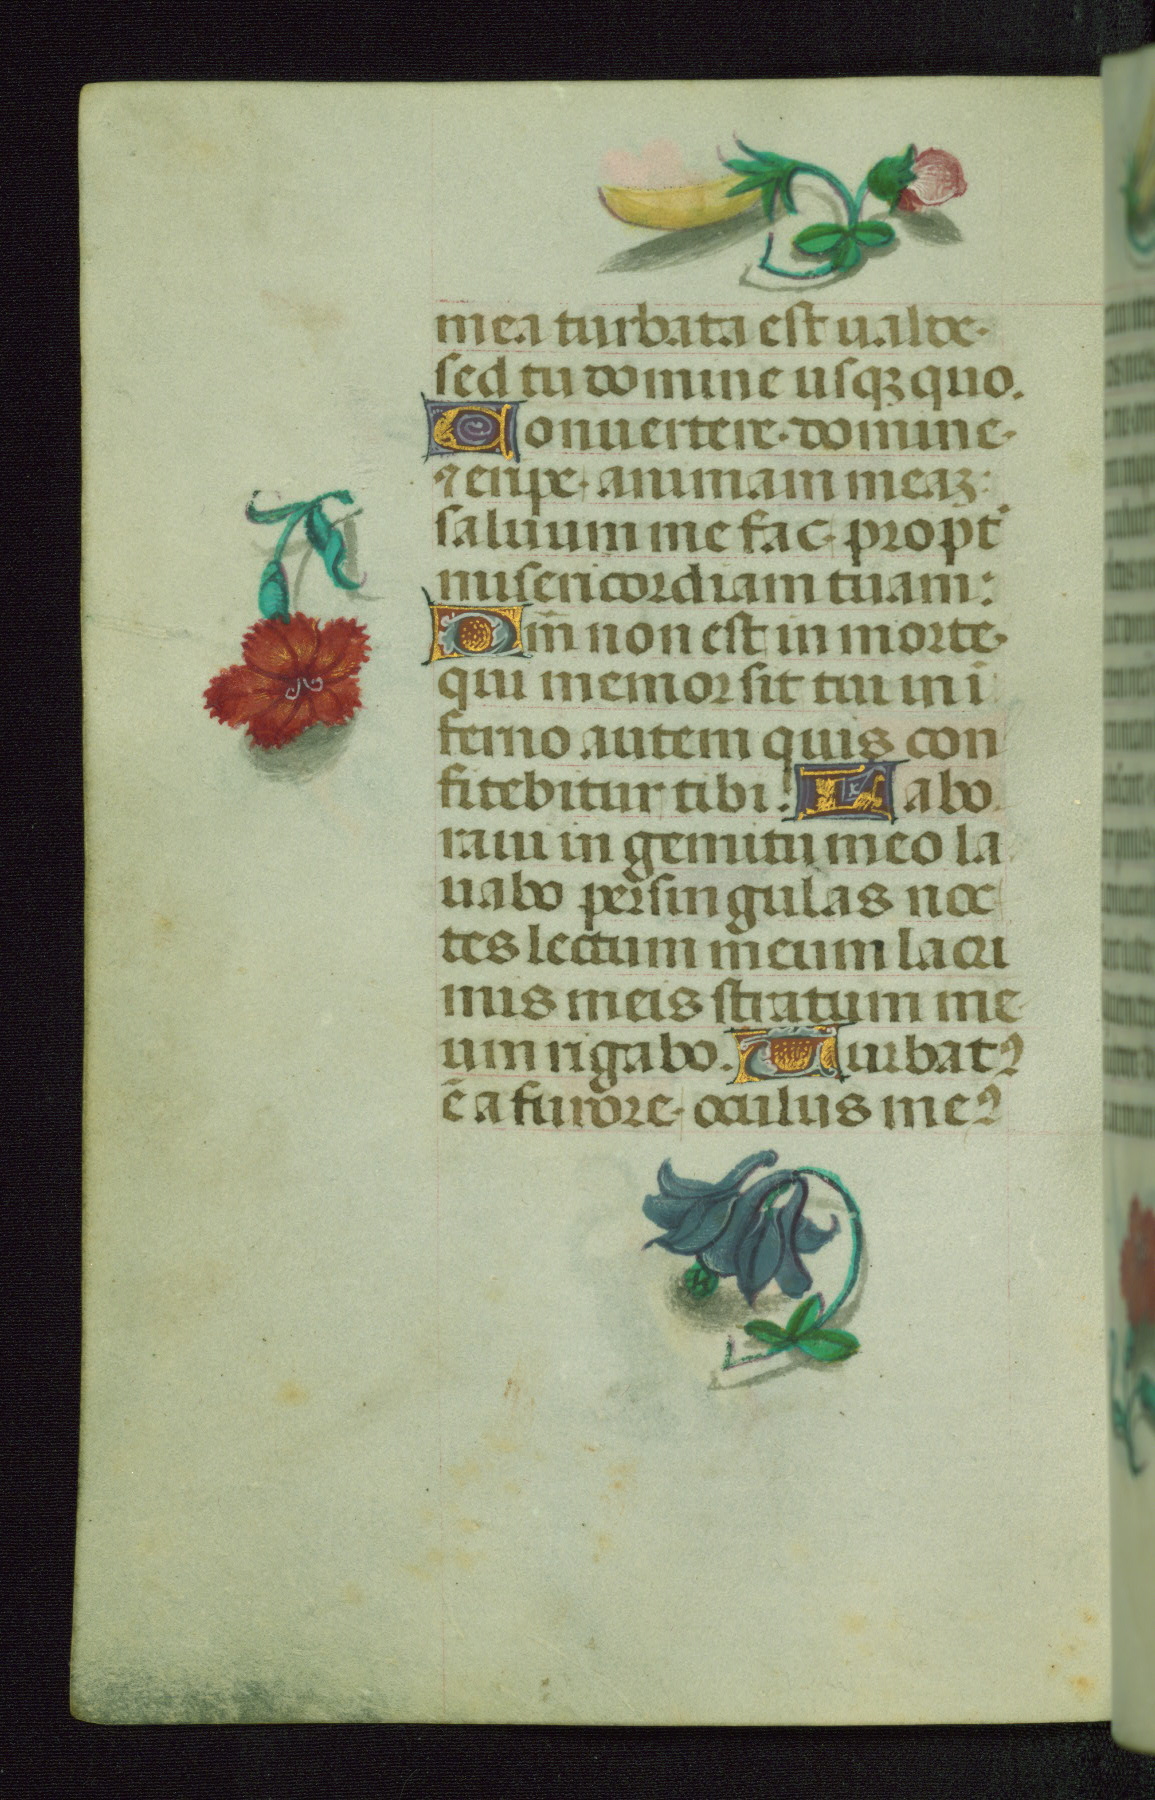 mea turbata est ualde·
sed tu domine usqꝫ quo.
Conuertere· domine·
⁊ eripe· animam meaꝫ:
saluum me fac· propt᾽
misericordiam tuam:
Qm̄ non est in morte·
qui memor sit tui in i
ferno autem quis con
fitebitur tibi: Labo
raui in gemitu meo la
uabo per singulas noc
tes lectum meum lacri
mis meis stratum me
um rigabo. Turbatꝰ
ē a furore· oculus meꝰ